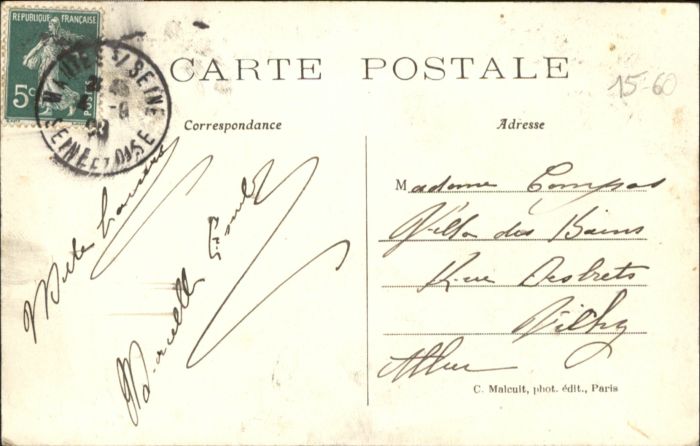 REPUBLIQUE FRANÇAISE
5c
POSTES
SEINE ET OISE
CARTE POSTALE
15-60
Correspondance
Adresse
Marcelle
Madame Compas
Villa des Bains
Rue Desbrets
Vichy
Allier
C. Malcuit, phot. édit., Paris